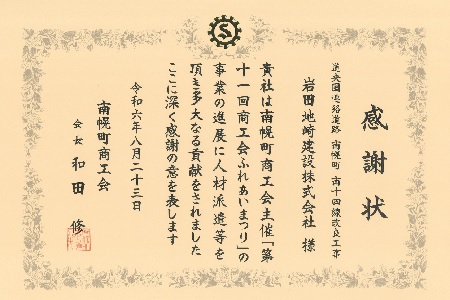 感謝状
道央圏連絡道路 南幌町 南十四線改良工事
岩田地崎建設株式会社 様
貴社は南幌町商工会主催「第
十一回商工会ふれあいまつり」の
事業の進展に人材派遣等を
頂き多大なる貢献をされました
ここに深く感謝の意を表します
令和六年八月二十三日
南幌町商工会
会長 和田 修